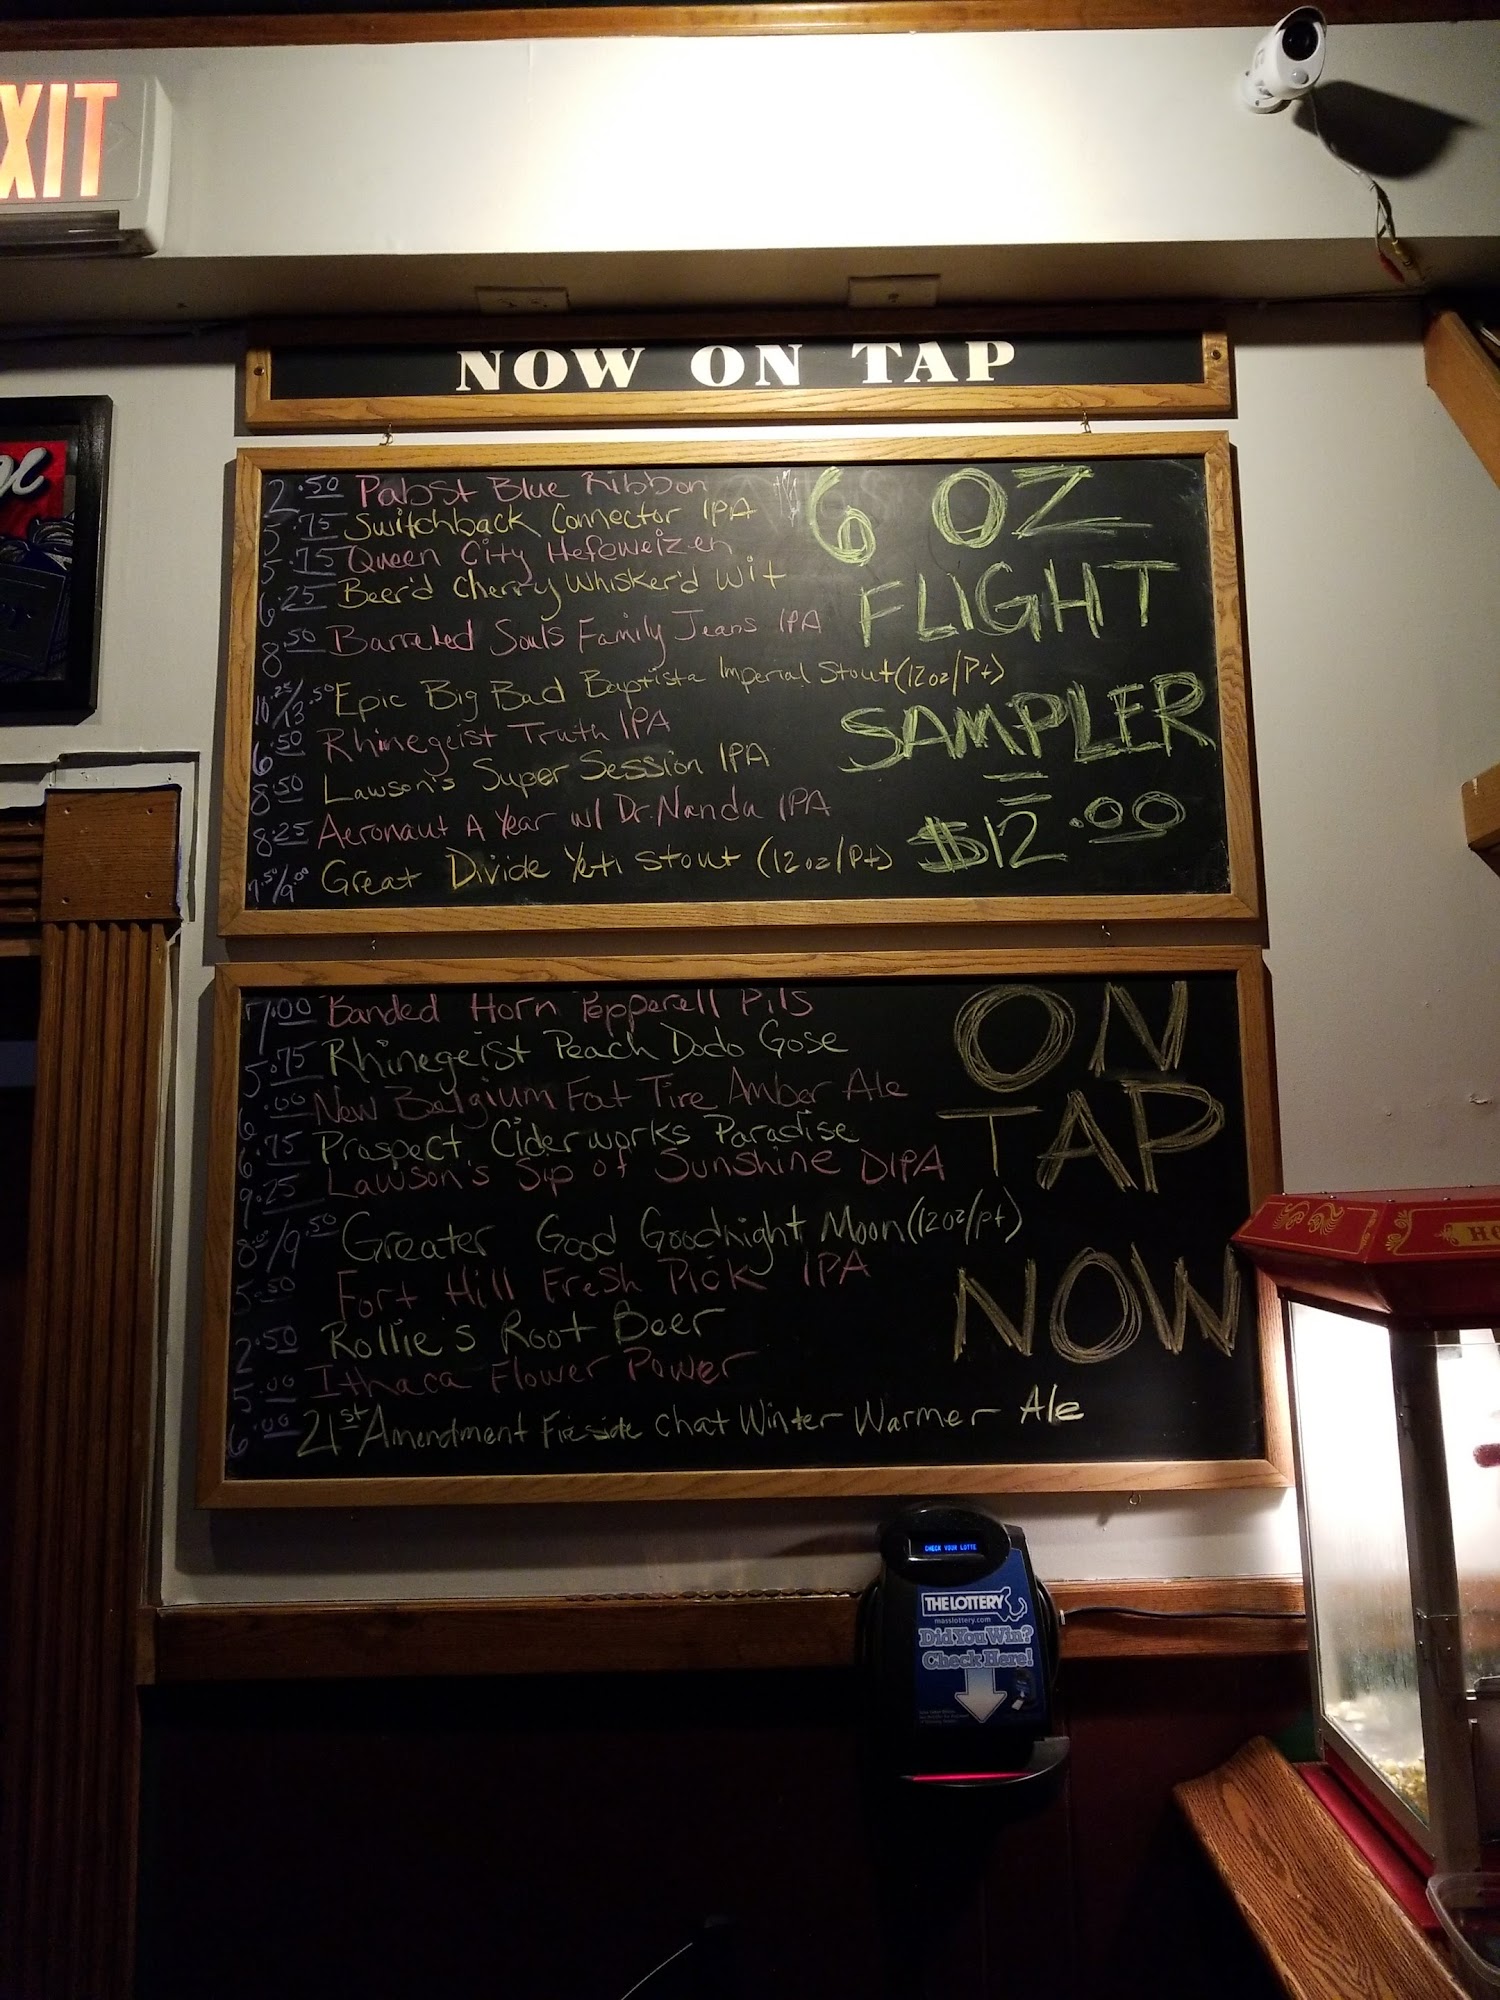 XIT
NOW ON TAP
2.50 Pabst Blue Ribbon
5.75 Switchback Connector IPA
5.75 Queen City Hefeweizen
6.25 Beer'd Cherry Whisker'd Wit
8.50 Barreled Souls Family Jeans IPA
10.25/13.50 Epic Big Bad Baptista Imperial Stout (12oz/Pt)
6.50 Rhinegeist Truth IPA
8.50 Lawson's Super Session IPA
8.25 Aeronaut A Year w/ Dr. Nandu IPA
7.50/9.00 Great Divide Yeti Stout (12oz/Pt)
6 OZ
FLIGHT
SAMPLER
$12.00
7.00 Banded Horn Pepperell Pils
5.75 Rhinegeist Peach Dodo Gose
6.00 New Belgium Fat Tire Amber Ale
6.75 Prospect Ciderworks Paradise
9.25 Lawson's Sip of Sunshine DIPA
8.00/9.50 Greater Good Goodnight Moon (12oz/pt)
5.50 Fort Hill Fresh Pick IPA
2.50 Rollie's Root Beer
5.00 Ithaca Flower Power
6.00 21st Amendment Fireside chat Winter Warmer Ale
ON
TAP
NOW
HO
CHECK YOUR LOTTE
THE LOTTERY
masslottery.com
Did You Win?
Check Here!